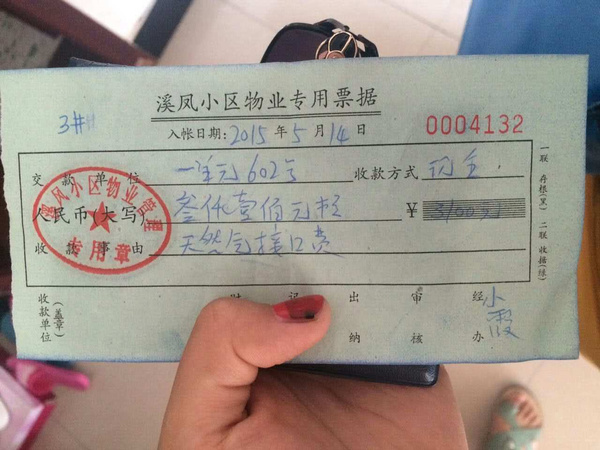 溪凤小区物业专用票据
3#
入帐日期:2015年5月14日
0004132
交款单位 一单元602号 收款方式 现金
人民币(大写) 叁仟壹佰元整 ¥ 3100元
收款事由 天然气接口费
收款单位(盖章) 财 记 出纳 审核 经办 小霞
一联 存根(黑) 二联 收据(绿)
溪凤小区物业管理
专用章